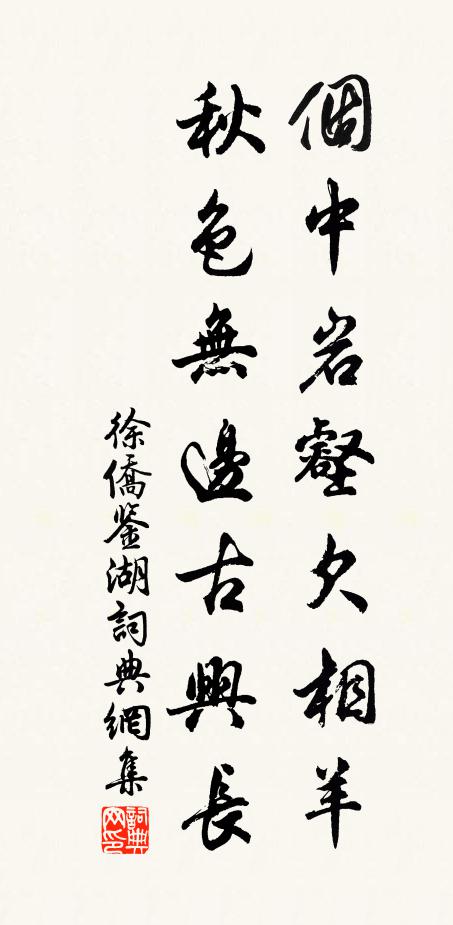 個中岩壑欠相羊
秋色無邊古興長
徐僑鑒湖詞典網集
詞典网印